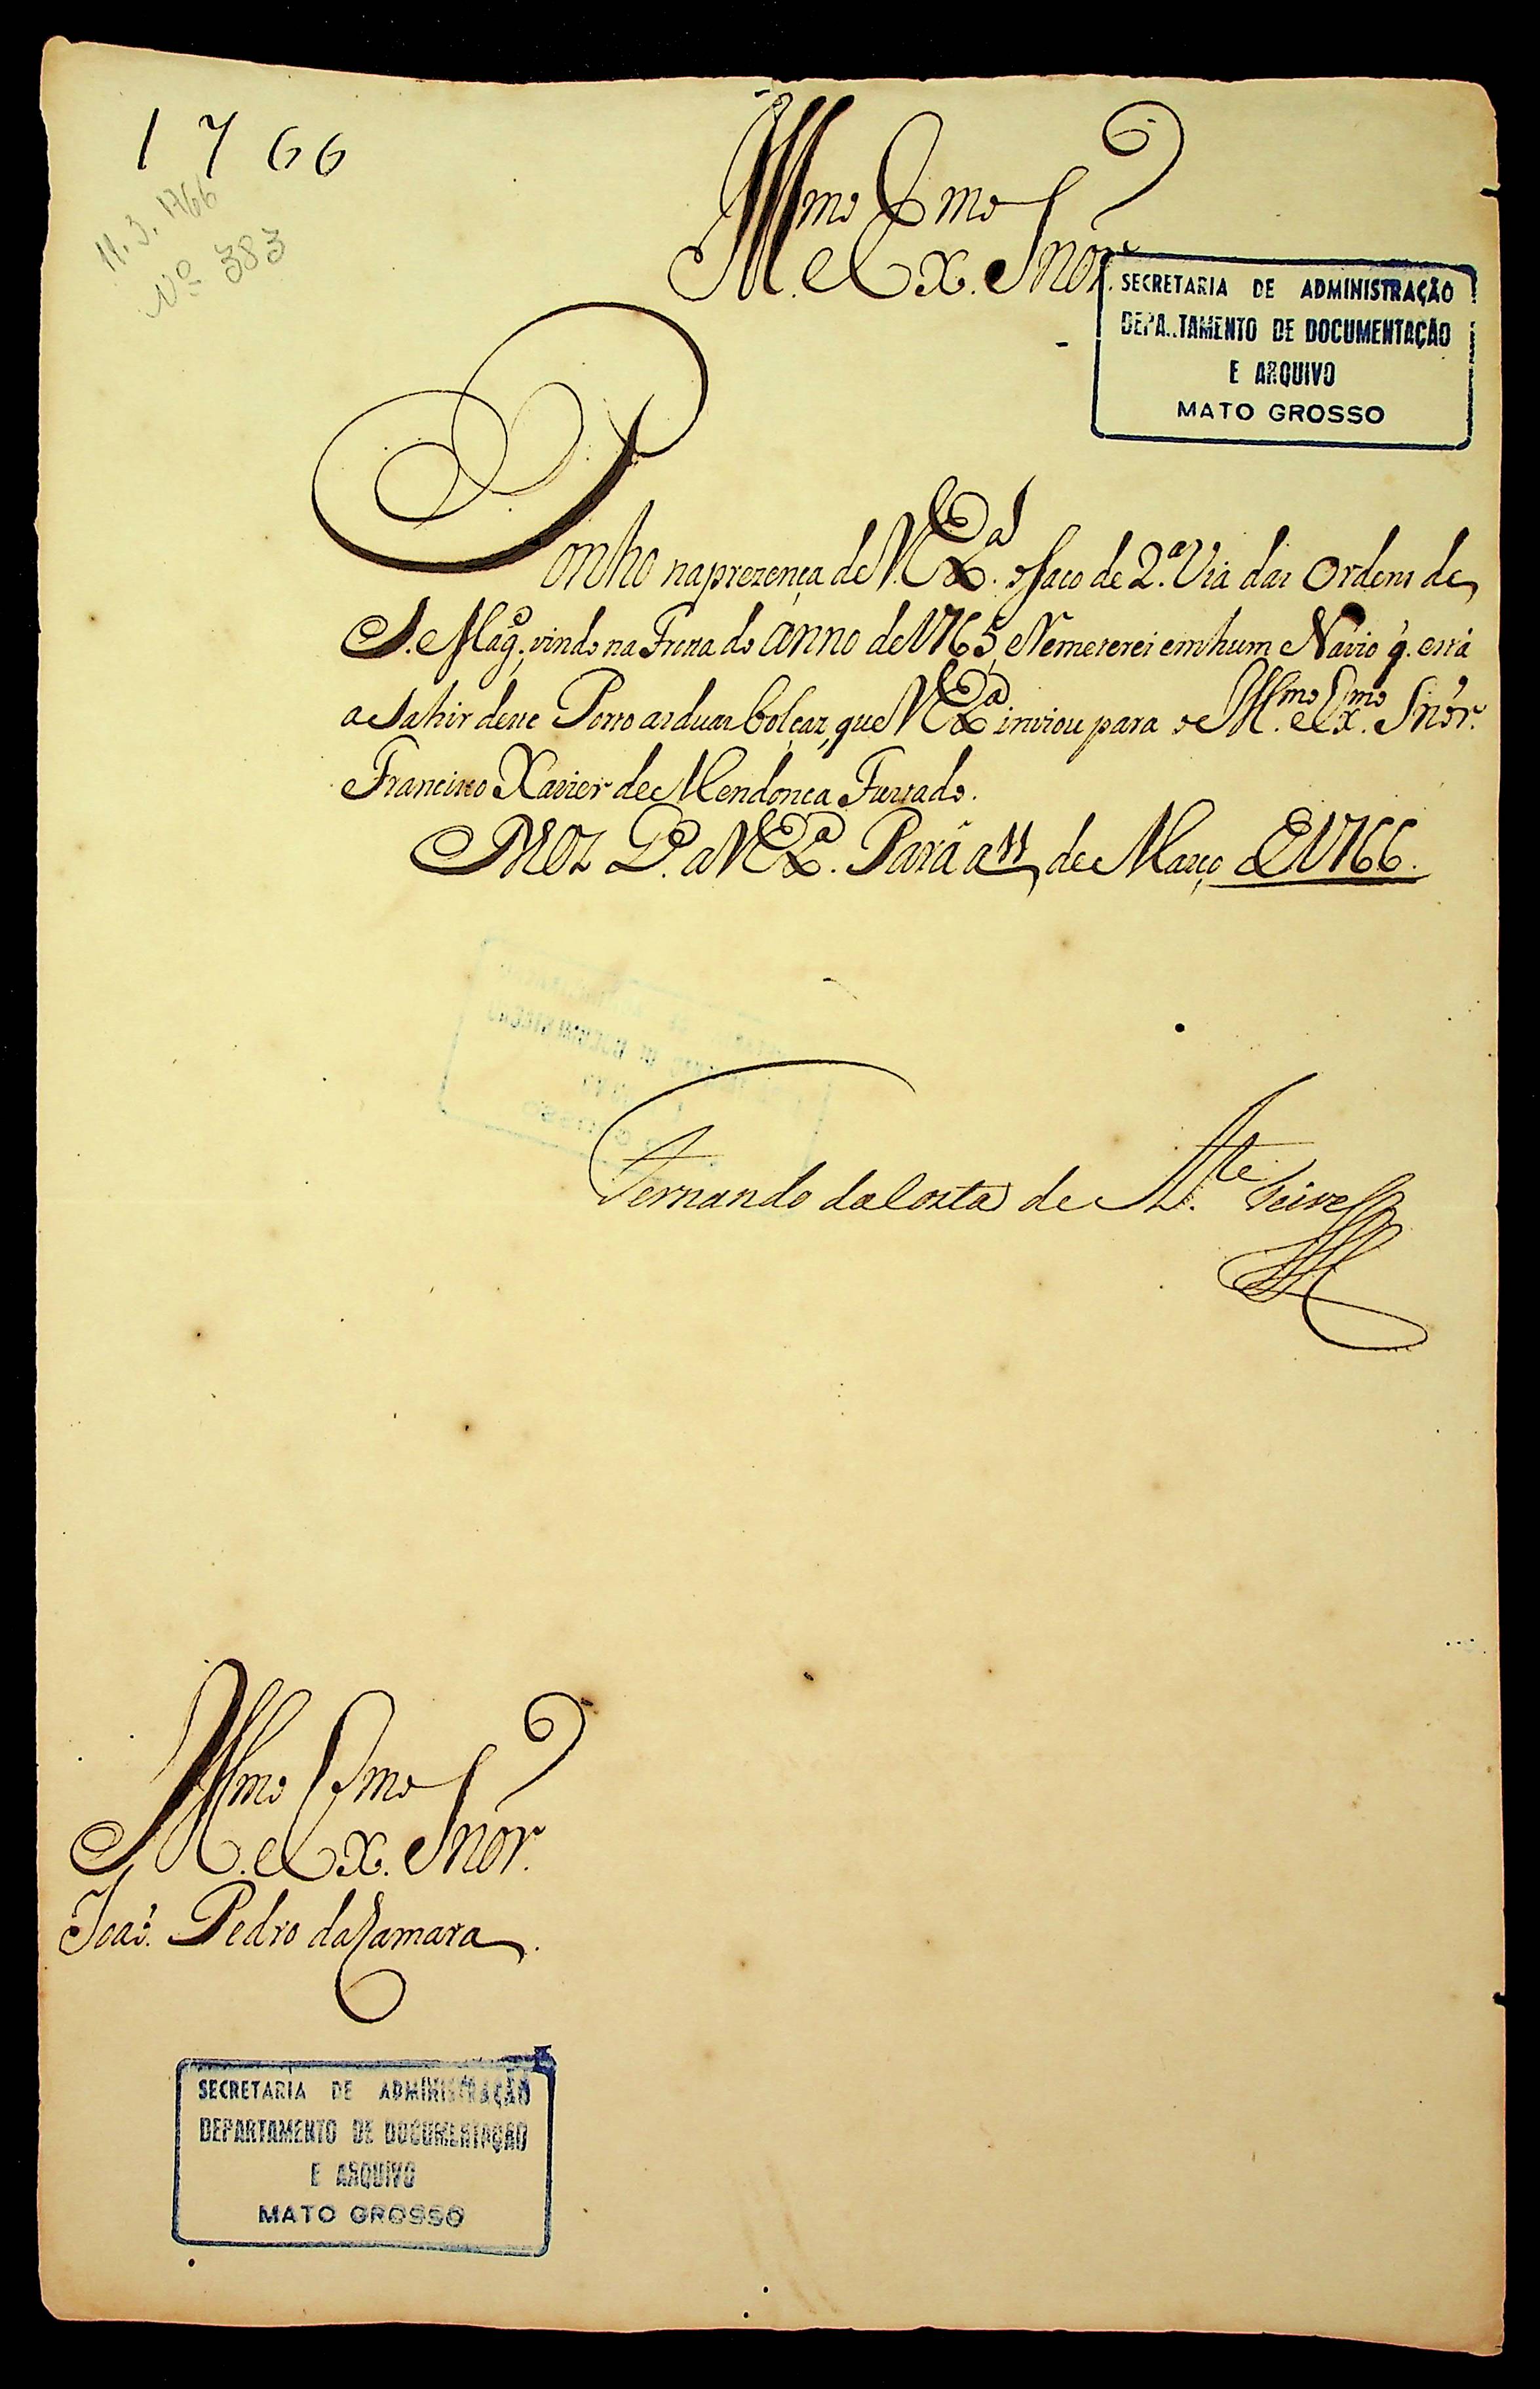 1766
11.3.1766
Nº 383
Illmo. e Exmo. Snõr.
SECRETARIA DE ADMINISTRAÇÃO
DEPA..TAMENTO DE DOCUMENTAÇÃO
E ARQUIVO
MATO GROSSO
Ponho na prezença de V. Exª. o Saco de 2.ª Via das Ordens de
S. Magᵉ., vindo na Frota do anno de 1765, e Remeterei em hum Navio q̃. está
a Sahir deste Porto as duas bolças, que V. Exª. inviou para o Illmo. e Exmo. Snõr.
Francisco Xavier de Mendonça Furtado.
Deos Gᵉ. a V. Exª. Pará a 11 de Março de 1766.
Fernando da Costa de Atᵉ. Teive
Illmo. e Exmo. Snõr.
Joaõ. Pedro da Camara.
SECRETARIA DE ADMINISTRAÇÃO
DEPARTAMENTO DE DOCUMENTAÇÃO
E ARQUIVO
MATO GROSSO